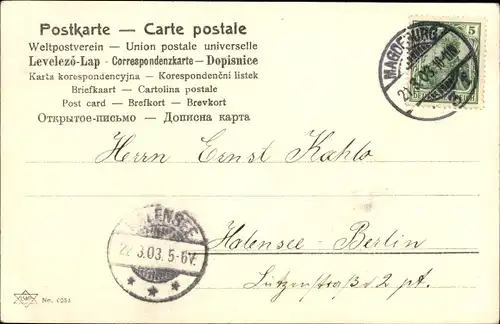 Postkarte — Carte postale
Weltpostverein — Union postale universelle
Levelező-Lap - Correspondenzkarte - Dopisnice
Karta korespondencyjna — Korespondenční listek
Briefkaart — Cartolina postale
Post card — Brefkort — Brevkort
Открытое-письмо — Дописна карта
MAGDEBURG
5
Herrn Ernst Kahlo
HALENSEE
22.3.03. 5-6V.
Halensee - Berlin
2 pt.
No.